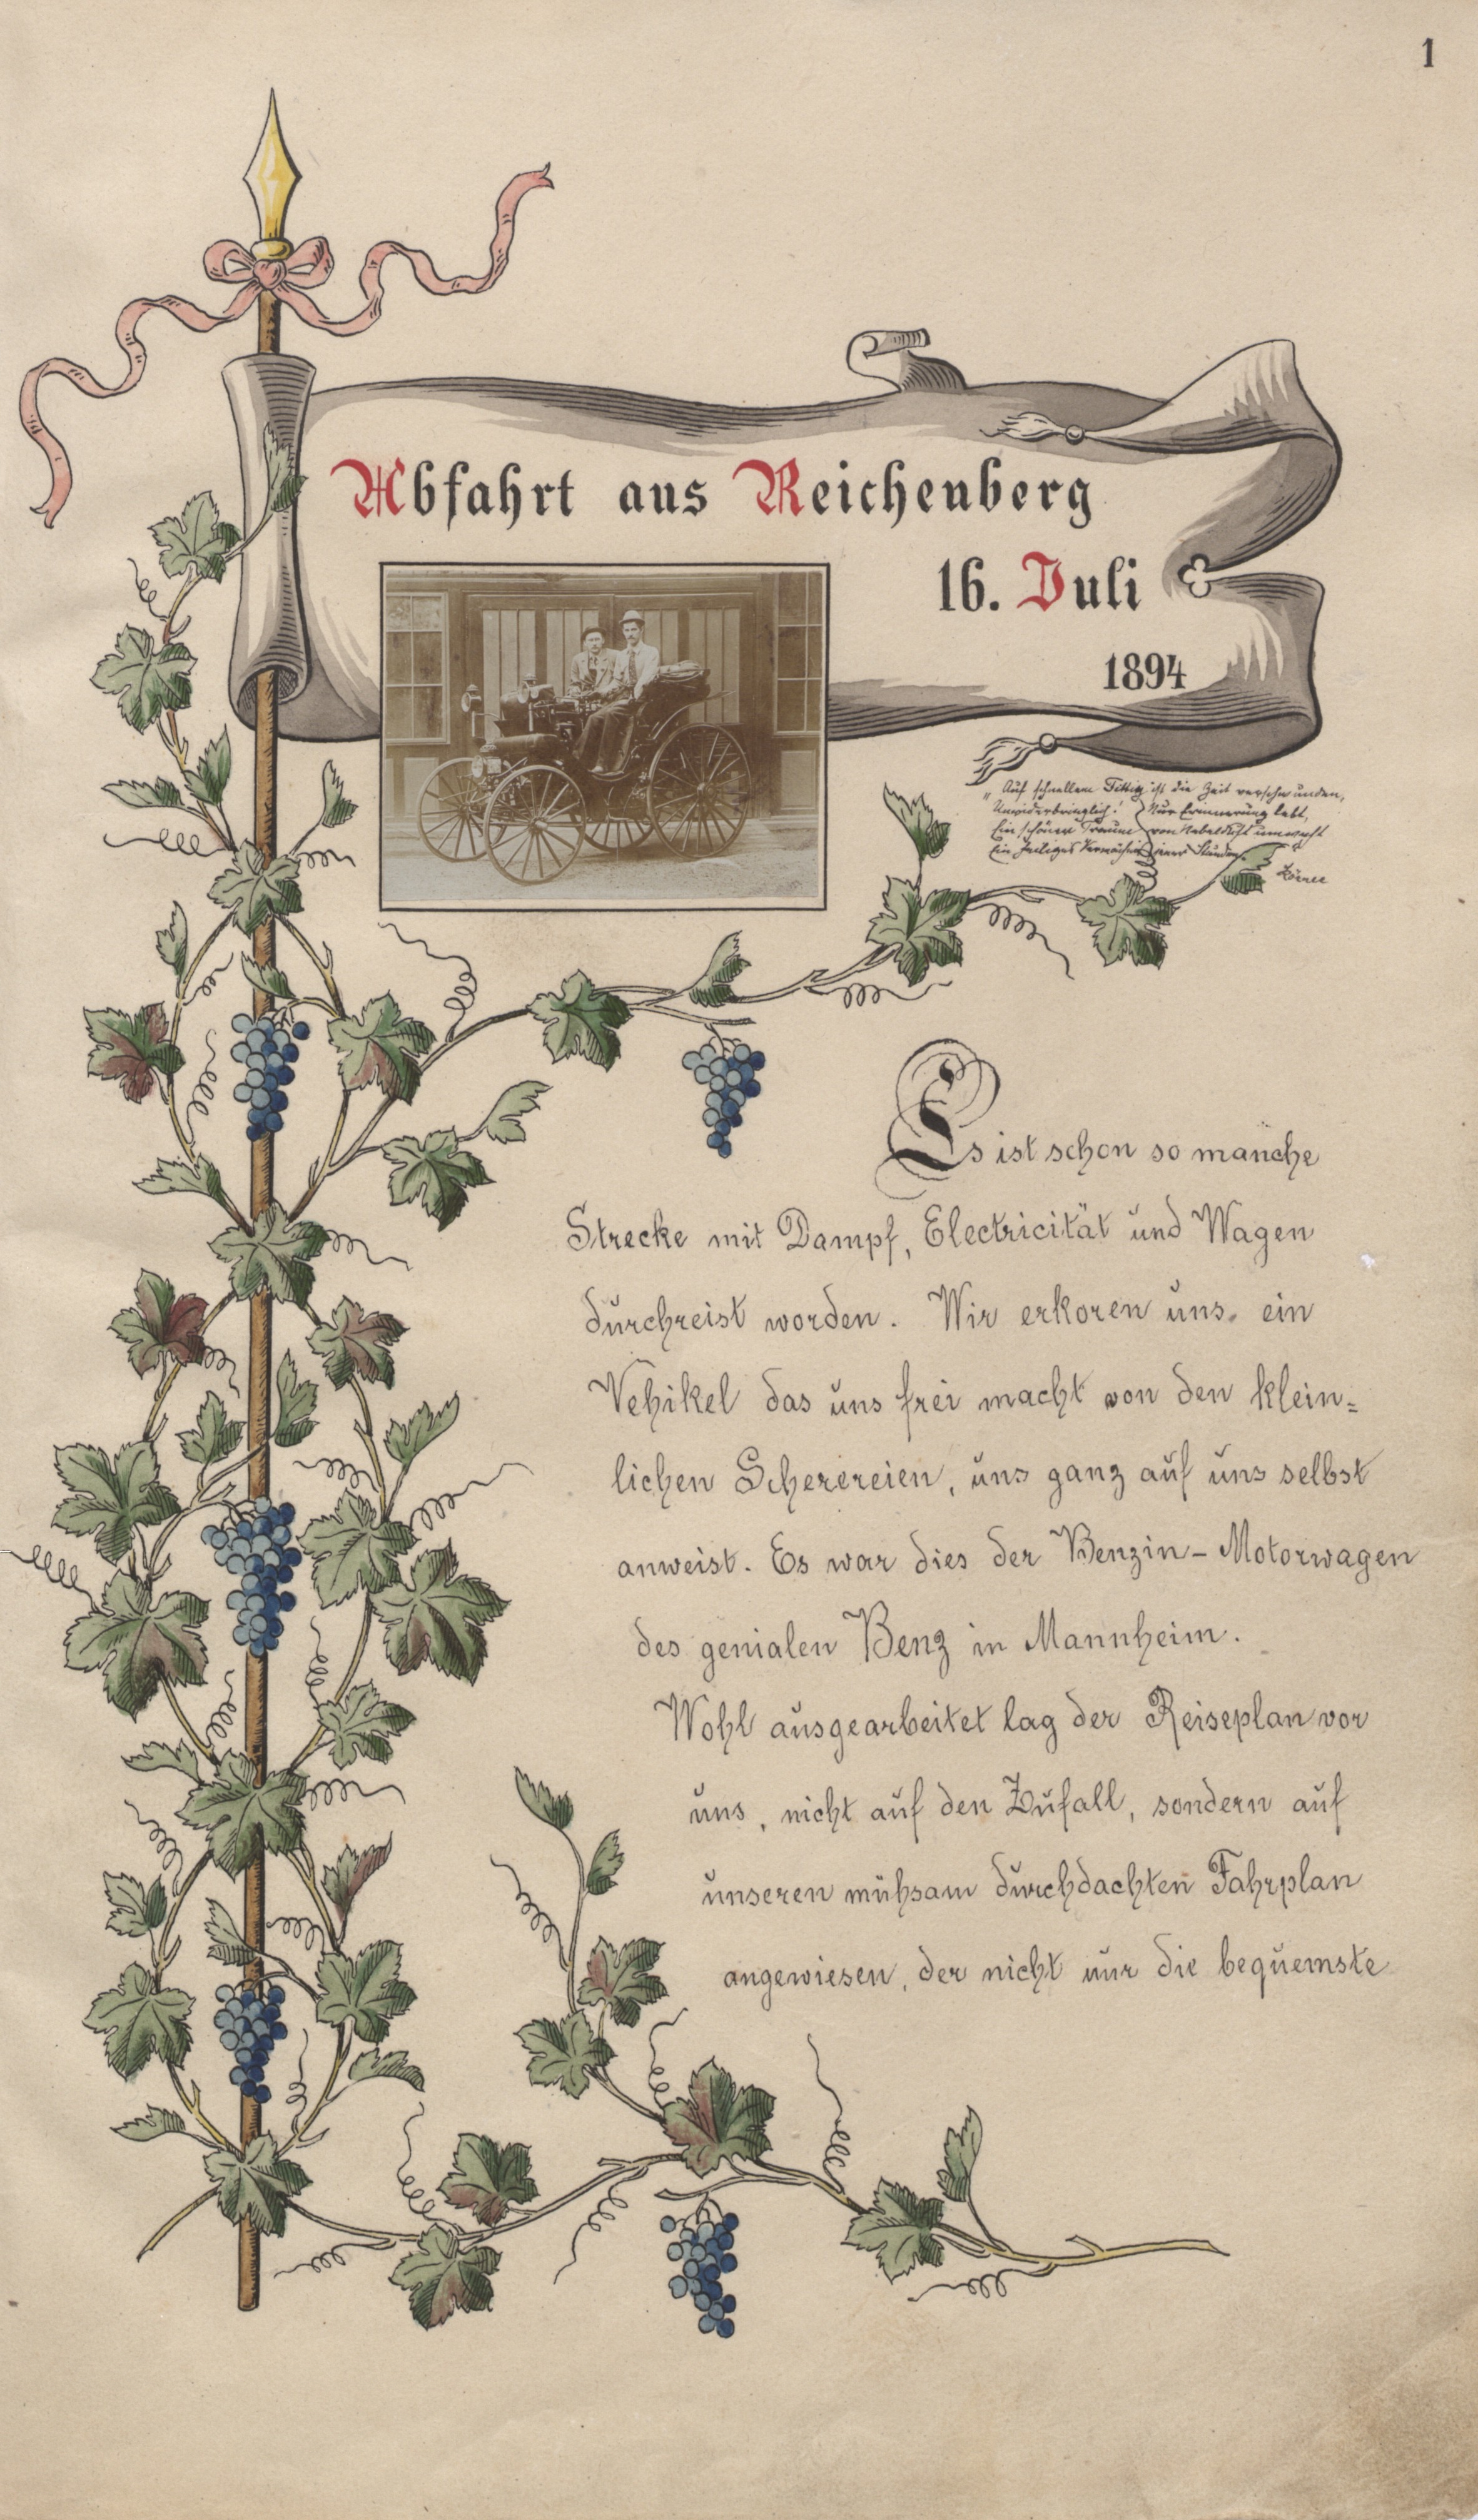 1
Abfahrt aus Reichenberg
16. Juli
1894
„Auf schnellem Fittig ist die Zeit verschwunden,
Unwiderbringlich! Nur Erinnerung lebt,
Ein schöner Traum von Nebelduft umwebt
Ein heiliges Stunden.
Es ist schon so manche
Strecke mit Dampf, Electricität und Wagen
durchreist worden. Wir erkoren uns ein
Vehikel das uns frei macht von den klein=
lichen Scherereien, uns ganz auf uns selbst
anweist. Es war dies der Benzin-Motorwagen
des genialen Benz in Mannheim.
Wohl ausgearbeitet lag der Reiseplan vor
uns, nicht auf den Zufall, sondern auf
unseren mühsam durchdachten Fahrplan
angewiesen, der nicht nur die bequemste